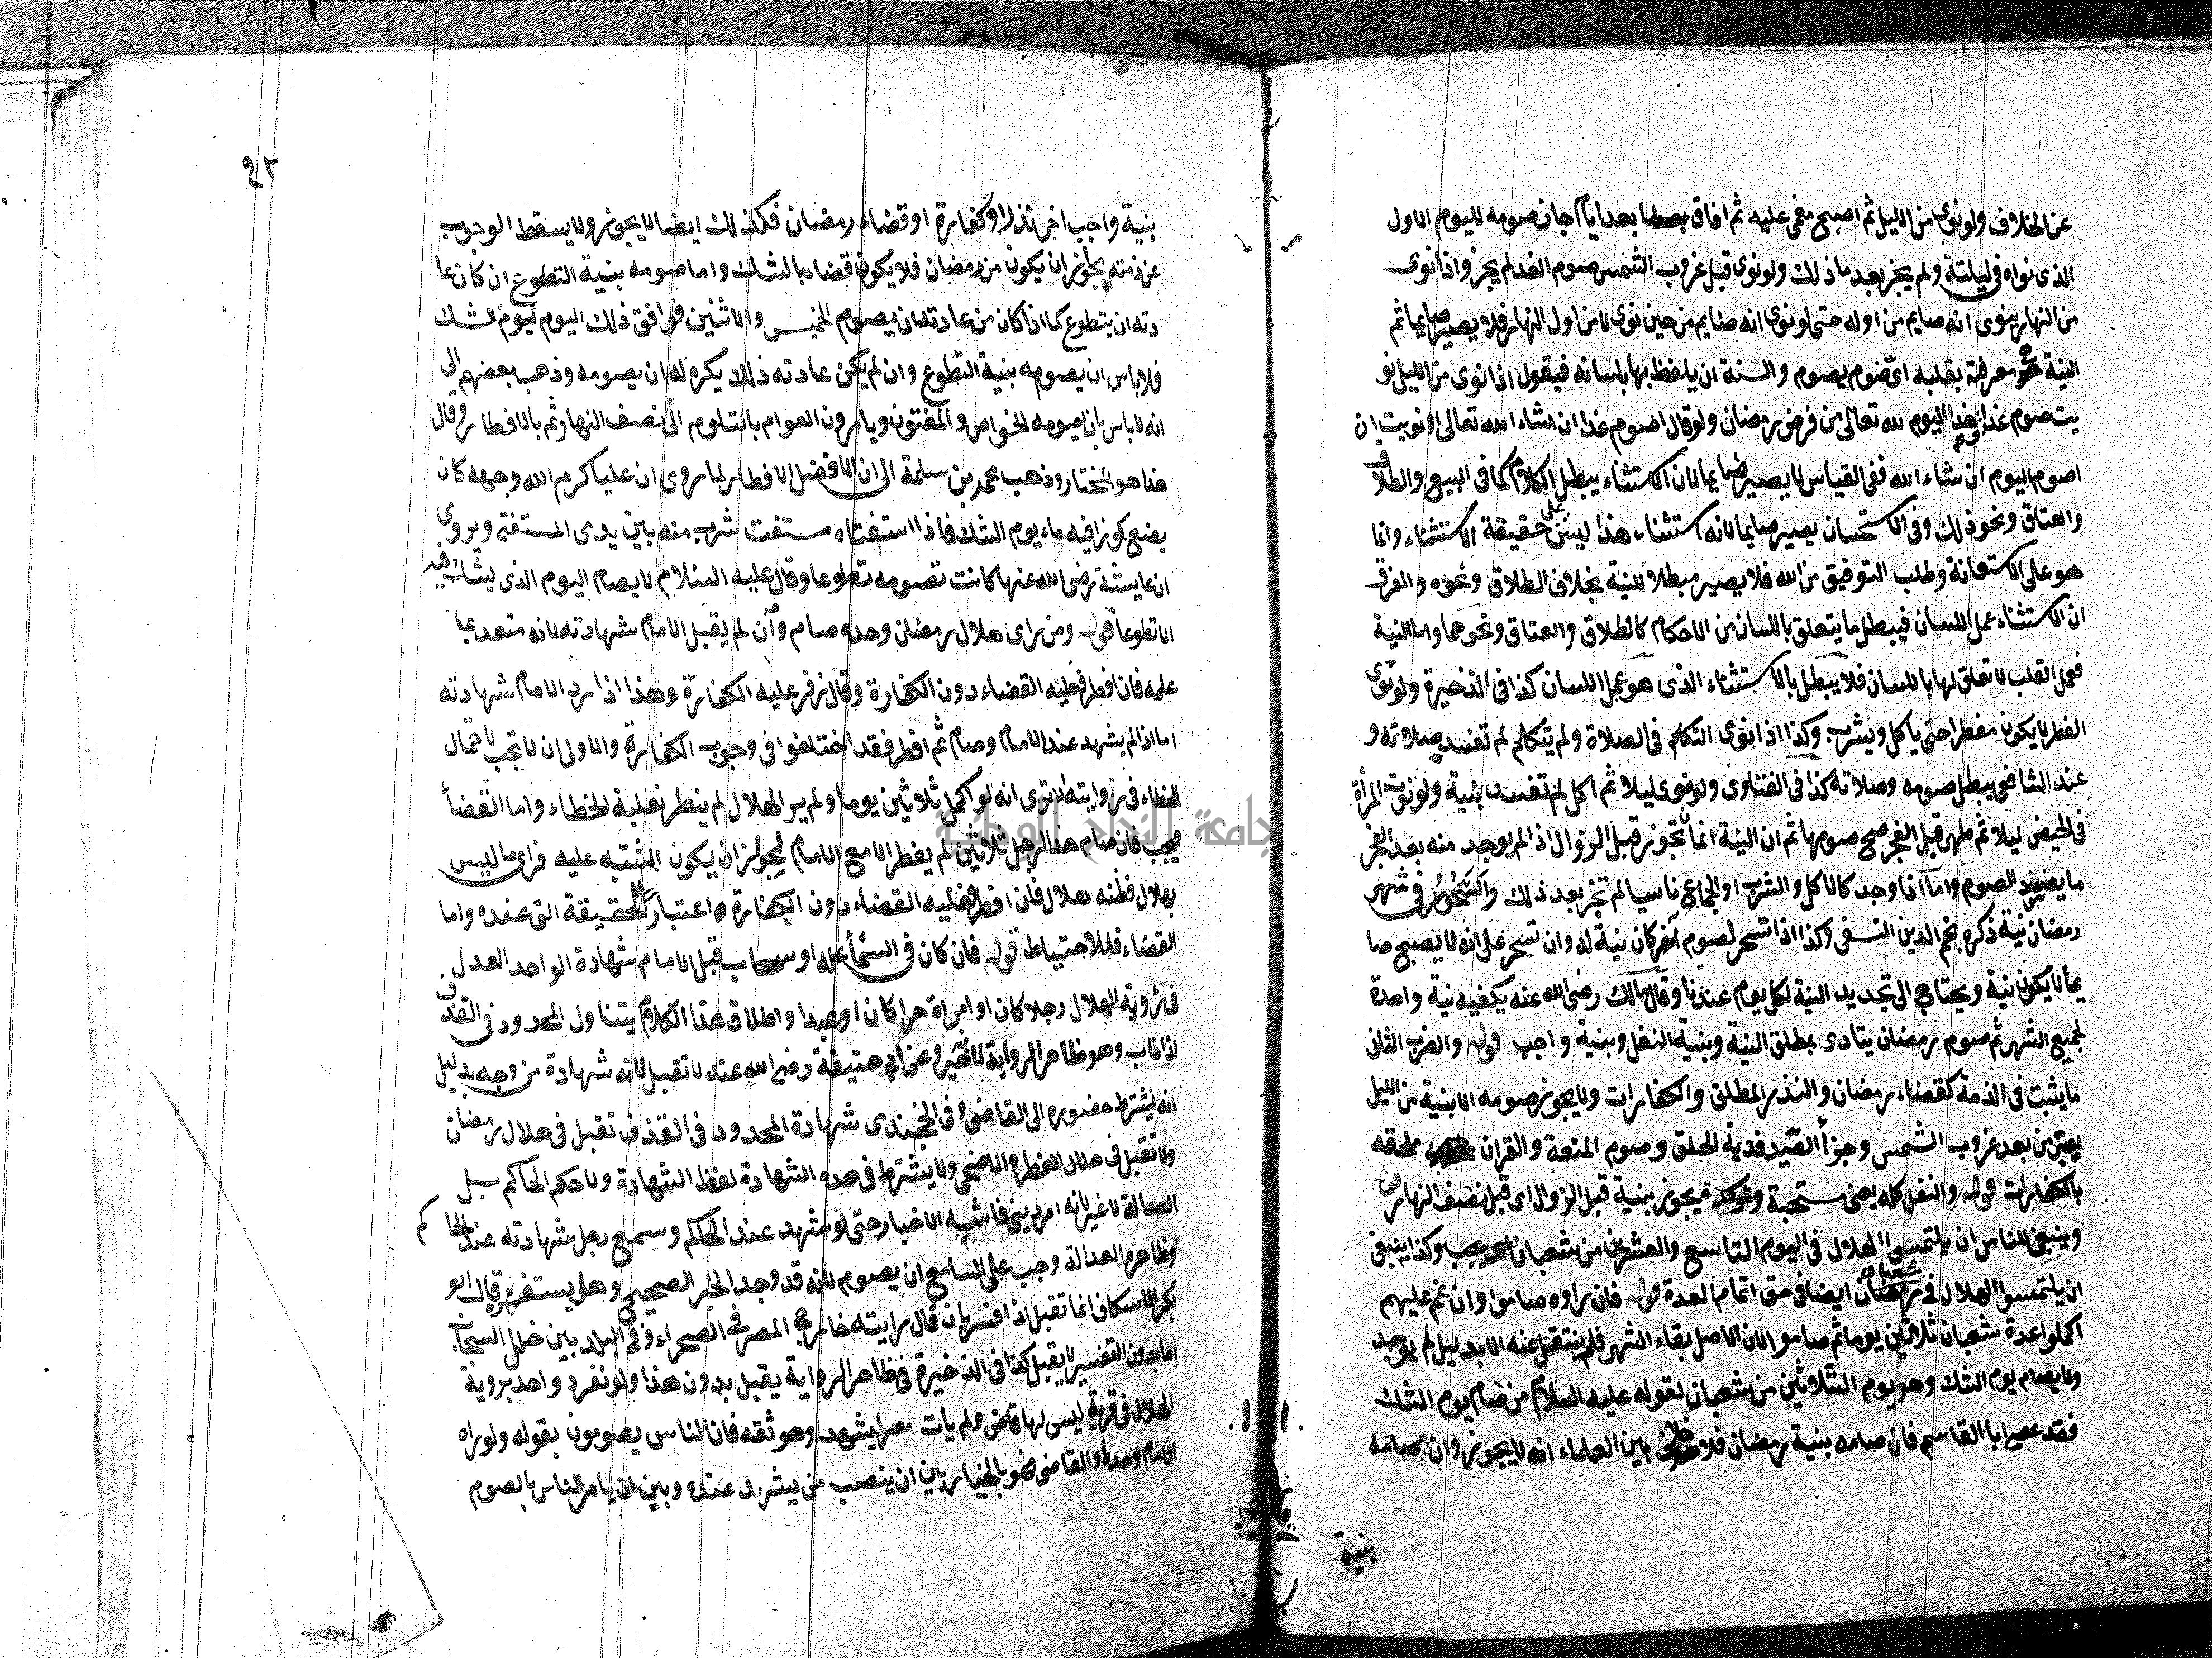 عن الخلاف ولو نوى من الليل ثم اصبح مغمى عليه ثم افاق بعد ايام جاز صومه لليوم الاول
الذى نواه فى ليلته ولم يجز بعد ما ذلك ولو نوى قبل غروب الشمس صوم الغد لم يجز واذا نوى
من النهار ينوى انه صايم من اوله حتى لو نوى انه صايم من حين نوى لا من اول النهار فلا يصير صايما ثم
النية معرفة بقلبه اى صوم يصوم والسنة ان يلفظ بها بلسانه فيقول اذا نوى من الليل نو
يت صوم غدا او هذا اليوم لله تعالى من فرض رمضان ولو قال اصوم غدا ان شاء الله تعالى او نويت ان
اصوم اليوم ان شاء الله ففى القياس لا يصير صايما لان الاستثناء يبطل الكلام كما فى البيع والطلاق
والعتاق ونحو ذلك وفى الاستحسان يصير صايما لانه استثناء هذا ليس على حقيقة الاستثناء وانما
هو على الاستعانة وطلب التوفيق من الله فلا يصير مبطلا للنية بخلاف الطلاق ونحوه والفرق
ان الاستثناء عمل اللسان فيبطل ما يتعلق باللسان من الاحكام كالطلاق والعتاق ونحوهما واما النية
فعمل القلب لا تعلق لها باللسان فلا يبطل بالاستثناء الذى هو عمل اللسان كذا فى الذخيرة ولو نوى
الفطر لا يكون مفطرا حتى ياكل ويشرب وكذا اذا نوى التكلم فى الصلاة ولم يتكلم لم تفسد صلاته و
عند الشافعى يبطل صومه وصلاته كذا فى الفتاوى ولو نوى ليلا ثم اكل لم تفسد بنية ولو نوت المرأة
فى الحيض ليلا ثم طهر قبل الفجر صح صومها ثم ان النية انما تجوز قبل الزوال اذا لم يوجد منه بعد الفجر
ما يفسد الصوم واما اذا وجد كالاكل والشرب او الجماع ناسيا لم تجز بعد ذلك والسحور فى شهر
رمضان نية ذكره نجم الدين النسفى وكذا اذا تسحر لصوم آخر كان نية له وان تسحر على انه لا يصبح صا
يما لا يكون نية ويحتاج الى تجديد النية لكل يوم عندنا وقال مالك رضى الله عنه يكفيه نية واحدة
لجميع الشهر ثم صوم رمضان يتادى بمطلق النية وبنية النفل وبنية واجب قوله والضرب الثانى
ما يثبت فى الذمة كقضاء رمضان والنذر المطلق والكفارات ولا يجوز صومه الا بنية من الليل
يعتبر من بعد غروب الشمس وجزأ الصيد فدية الحلق وصوم المتعة والقران ملحقه
بالكفارات قوله والنفل كله يعنى مستحبة يجوز بنية قبل الزوال اى قبل نصف النهار
وينبغى للناس ان يلتمسوا الهلال فى اليوم التاسع والعشرين من شعبان اى يجب وكذا ينبغى
ان يلتمسوا الهلال فى شعبان ايضا فى حق اتمام العدة قوله فان راوه صاموا وان غم عليهم
اكملوا عدة شعبان ثلاثين يوما ثم صاموا لان الاصل بقاء الشهر فلم ينتقل عنه الا بدليل لم يوجد
ولا يصام يوم الشك وهو يوم الثلاثين من شعبان لقوله عليه السلام من صام يوم الشك
فقد عصى ابا القاسم فان صامه بنية رمضان فلا بين العلماء انه لا يجوز وان صامه
بنية
بنية واجب اخر نذرا او كفارة او قضاء رمضان فكذلك ايضا لا يجوز ولا يسقط الوجوب
عن ذمته لجواز ان يكون من رمضان فلا يكون قضاء بالشك واما صومه بنية التطوع ان كان عا
دته ان يتطوع كما اذا كان من عادته ان يصوم الخميس والاثنين فوافق ذلك اليوم يوم الشك
فلا باس ان يصومه بنية التطوع وان لم يكن عادته ذلك يكره له ان يصومه وذهب بعضهم الى
انه لا باس بان يصومه الخواص والمفتون ويامرون العوام بالتلوم الى نصف النهار ثم بالافطار وقال
هذا هو المختار وذهب محمد بن سلمة الى ان الافضل الافطار لما روى ان عليا كرم الله وجهه كان
يضع كوزا فيه ماء يوم الشك فاذا استفتاه مستفت شرب منه بين يدى المستفتى ويروى
ان عايشة رضى الله عنها كانت تصومه تطوعا وقال عليه السلام لا يصام اليوم الذى يشك فيه
الا تطوعا قوله ومن راى هلال رمضان وحده صام وان لم يقبل الامام شهادته لانه متعبد بما
علمه فان افطر فعليه القضاء دون الكفارة وقال زفر عليه الكفارة وهذا اذا رد الامام شهادته
اما اذا لم يشهد عند الامام وصام ثم افطر فقد اختلفوا فى وجوب الكفارة والاولى ان لا تجب لاحتمال
الخطاء فى روايته الا ترى انه لو اكمل ثلاثين يوما ولم ير الهلال لم يفطر لغلبة الخطاء واما القضاأ
فيجب فان صام هذا الرجل ثلاثين لم يفطر الا مع الامام لجواز ان يكون اشتبه عليه فراى ما ليس
بهلال فظنه هلال فان افطر فعليه القضاء دون الكفارة اعتبارا للحقيقة التى عنده واما
القضاء فللاحتياط قوله فان كان فى السمأ علة او سحاب قبل الامام شهادة الواحد العدل
فى رؤية الهلال رجلا كان او امراة حرا كان او عبدا واطلاق هذا الكلام يتناول المحدود فى القذف
اذا تاب وهو ظاهر الرواية لانه خبر وعن ابى حنيفة رضى الله عنه لا تقبل لانه شهادة من وجه بدليل
انه يشترط حضوره الى القاضى وفى الخجندى شهادة المحدود فى القذف تقبل فى هلال رمضان
ولا تقبل فى هلال الفطر والاضحى ولا يشترط فى هذه الشهادة لفظ الشهادة ولا حكم الحاكم بل
العدالة لا غير لانه امر دينى فاشبه الاخبار حتى لو شهد عند الحاكم وسمع رجل شهادته عند الحاكم
وظاهره العدالة وجب على السامع ان يصوم لانه قد وجد الخبر الصحيح وهل يستفسره قال ابو
بكر الاسكاف انما تقبل اذا فسر بان قال رايته خارج المصر فى الصحراء وفى البلد بين خلل السحاب
اما بدون التفسير لا يقبل كذا فى الذخيرة فى ظاهر الرواية يقبل بدون هذا ولو تفرد واحد بروية
الهلال فى قرية ليس لها قاض ولم يات مصرا يشهد وهو ثقه فان الناس يصومون بقوله ولو راه
الامام وحده والقاضى فهو بالخيار بين ان ينصب من يشهد عنده وبين ان يامر الناس بالصوم
جامعة النجاح الوطنية